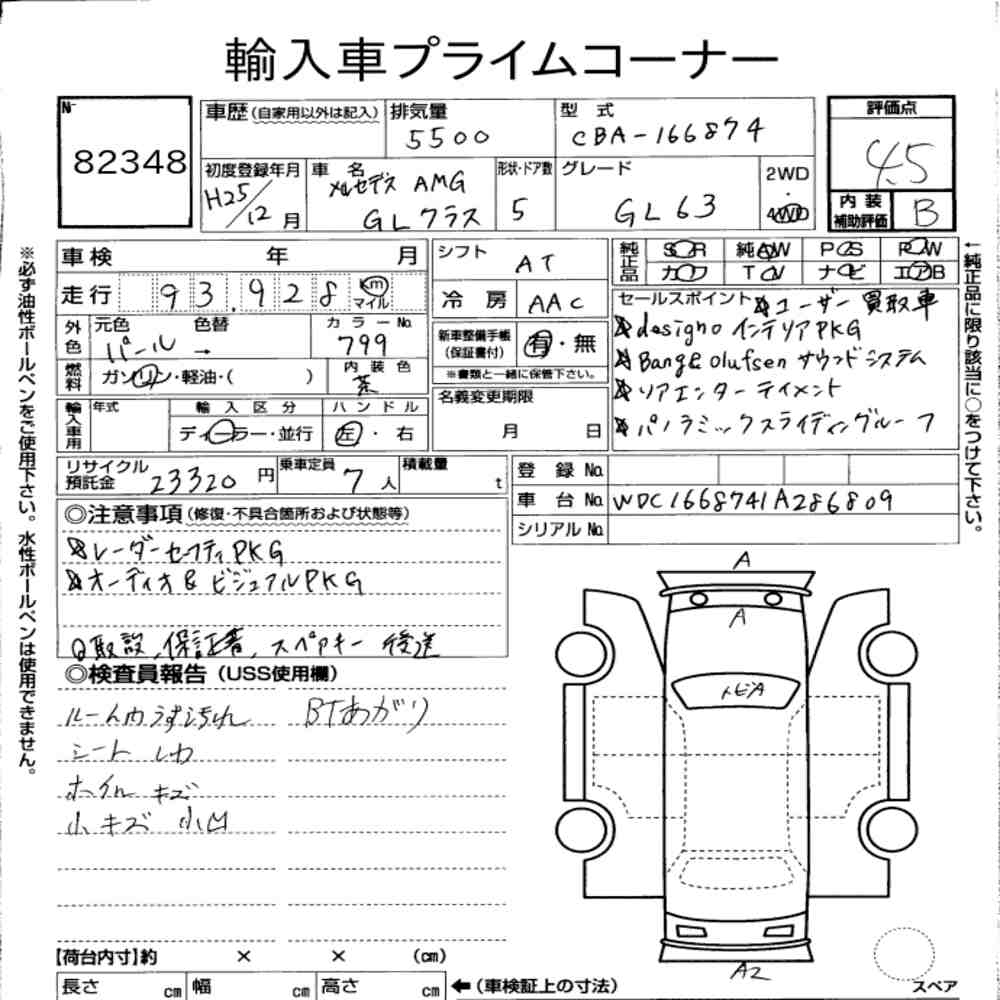 輸入車プライムコーナー
№
82348
車歴(自家用以外は記入)
排気量
5500
型 式
CBA-166874
評価点
4.5
初度登録年月
H25/12月
車 名
メルセデス AMG
GLクラス
形状・ドア数
5
グレード
GL63
2WD
・
4WD
内装
補助評価
B
車検 年 月
シフト
AT
純正品
SOR 純AW POS ROW
カワ TOV ナビ エアB
走行 93,928 km
マイル
冷 房
AAC
セールスポイント ☆ユーザー買取車
☆designo インテリアPKG
☆Bang & Olufsen サウンドシステム
☆リアエンターテイメント
☆パノラミックスライディングルーフ
外色
元色 色替
パール →
カラーNo.
799
新車整備手帳
(保証書付)
有・無
※書類と一緒に保管下さい。
燃料
ガソリン・軽油・( )
内装色
茶
輸入車用
年式
輸入区分
ディーラー・並行
ハンドル
左・右
名義変更期限
月 日
リサイクル
預託金
23320円
乗車定員
7人
積載量
t
登録 No.
車台 No.
WDC1668741A286809
シリアル No.
◎注意事項(修復・不具合箇所および状態等)
☆レーダーセーフティPKG
☆オーディオ& ビジュアルPKG
取説、保証書、スペアキー 後送
◎検査員報告(USS使用欄)
ルーム内うす汚れ BTあがり
シート シワ
ホイル キズ
小キズ 小凹
A
A
トビA
A2
【荷台内寸】約 × × (cm)
長さ cm 幅 cm 高さ cm ←(車検証上の寸法)
スペア
※必ず油性ボールペンをご使用下さい。水性ボールペンは使用できません。
←純正品に限り該当に○をつけて下さい。